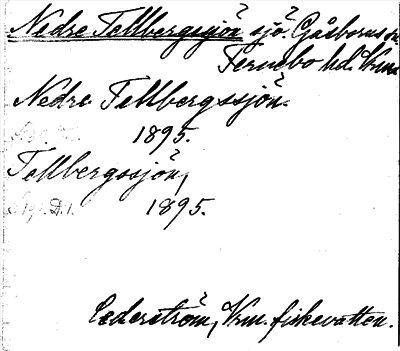 Nedre Tellbergssjön sjö. Gåsborns sn
Fernebo hd. Vrml
Nedre Tellbergssjön.
1895.
Tellbergssjön,
1895.
Cederström, Vrm. fiskevatten.